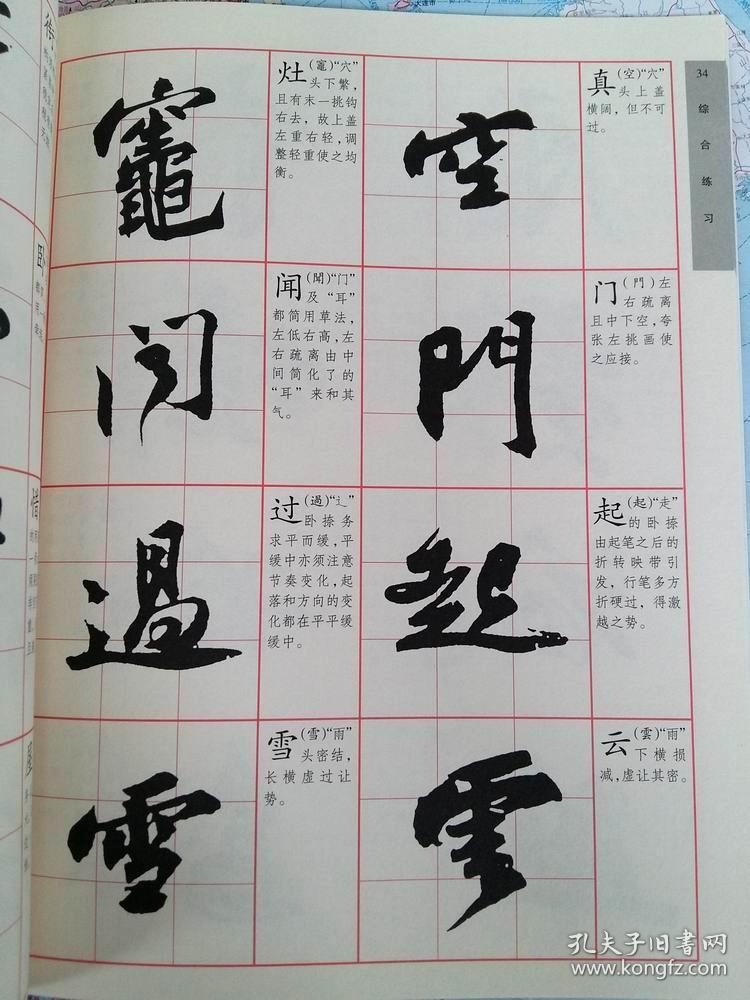 34
综合练习
空
真(空)“穴”
头上盖
横阔，但不可
过。
竈
灶(竈)“穴”
头下繁，
且有末一挑钩
右去，故上盖
左重右轻，调
整轻重使之均
衡。
門
门(門)左
右疏离
且中下空，夸
张左挑画使
之应接。
闻
闻(聞)“门”
及“耳”
都简用草法，
左低右高，左
右疏离由中
间简化了的
“耳”来和其
气。
起
起(起)“走”
的卧捺
由起笔之后的
折转映带引
发，行笔多方
折硬过，得激
越之势。
過
过(過)“辶”
卧捺务
求平而缓，平
缓中亦须注意
节奏变化，起
落和方向的变
化都在平平缓
缓中。
雲
云(雲)“雨”
下横损
减，虚让其密。
雪
雪(雪)“雨”
头密结，
长横虚过让
势。
孔夫子旧书网
www.kongfz.com